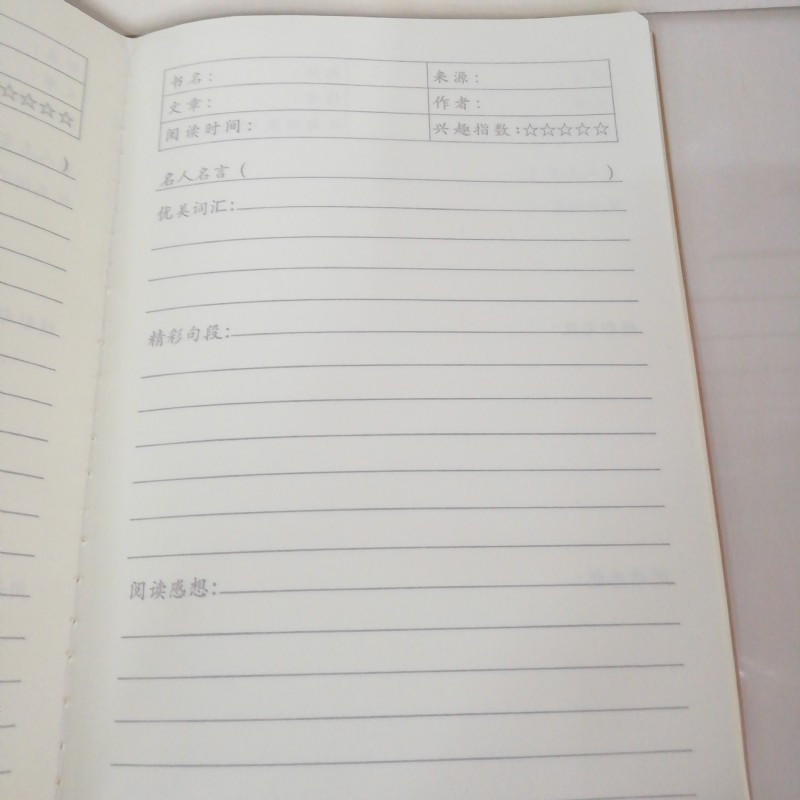 书名： 来源：
文章： 作者：
阅读时间： 兴趣指数：☆☆☆☆☆
名人名言（ ）
优美词汇：
精彩句段：
阅读感想：